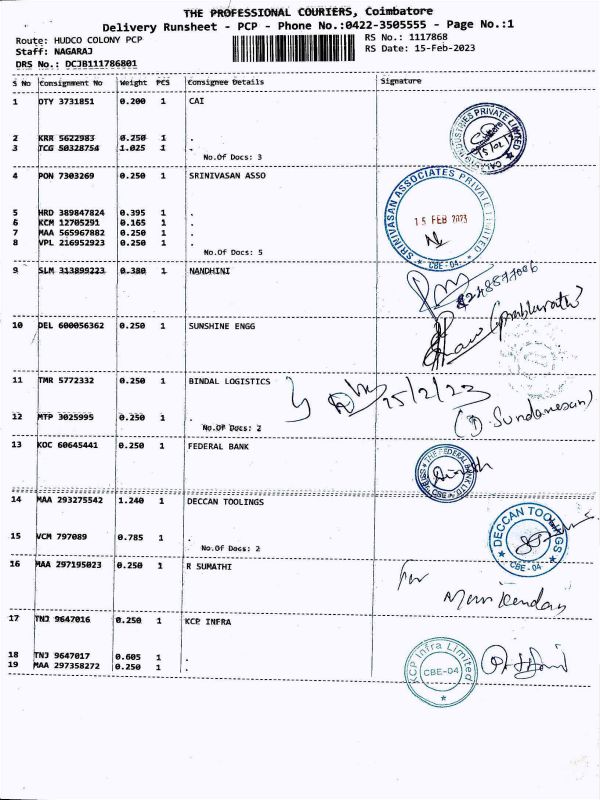 THE PROFESSIONAL COURIERS, Coimbatore
Delivery Runsheet - PCP - Phone No.:0422-3505555 - Page No.:1
Route: HUDCO COLONY PCP RS No.: 1117868
Staff: NAGARAJ RS Date: 15-Feb-2023
DRS No.: DCJB111786801
S No Consignment No Weight PCS Consignee Details Signature
1 OTY 3731851 0.200 1 CAI
2 KRR 5622983 0.250 1 .
3 TCG 50328754 1.025 1 .
No.Of Docs: 3
4 PON 7303269 0.250 1 SRINIVASAN ASSO
SRINIVASAN ASSOCIATES PRIVATE LIMITED
15 FEB 2023
CBE-04
5 HRD 389847824 0.395 1 .
6 KCM 12705291 0.165 1 .
7 MAA 565967882 0.250 1 .
8 VPL 216952923 0.250 1 .
No.Of Docs: 5
9 SLM 313899223 0.380 1 NANDHINI
10 DEL 600056362 0.250 1 SUNSHINE ENGG
11 TMR 5772332 0.250 1 BINDAL LOGISTICS
25/2/23
12 MTP 3025995 0.250 1 .
No.Of Docs: 2
13 KOC 60645441 0.250 1 FEDERAL BANK
THE FEDERAL BANK LTD
14 MAA 293275542 1.240 1 DECCAN TOOLINGS
DECCAN TOOLINGS
CBE-04
15 VCM 797089 0.785 1 .
No.Of Docs: 2
16 MAA 297195023 0.250 1 R SUMATHI
for
17 TNJ 9647016 0.250 1 KCP INFRA
18 TNJ 9647017 0.605 1 .
19 MAA 297358272 0.250 1 .
KCP Infra Limited
CBE-04